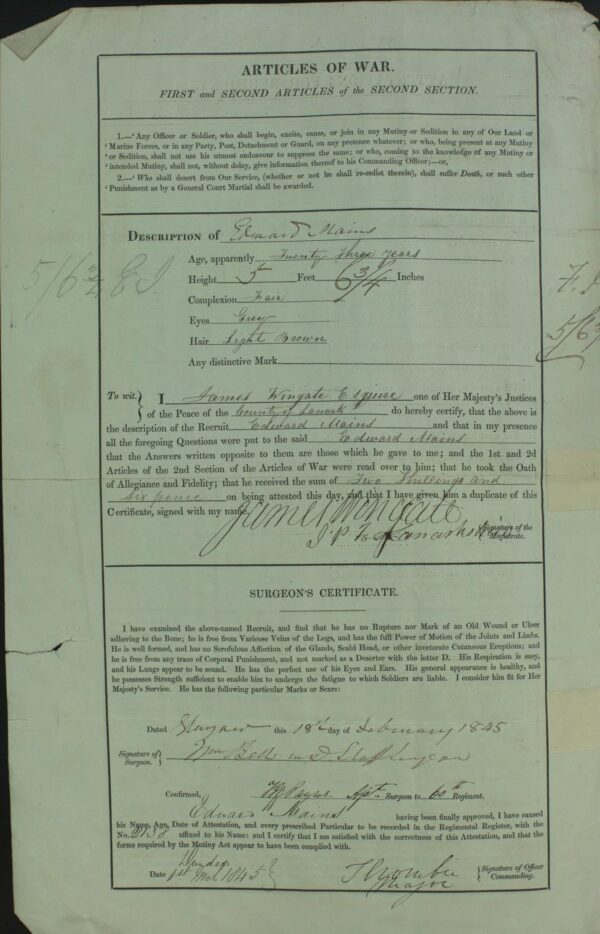 ARTICLES OF WAR.
FIRST and SECOND ARTICLES of the SECOND SECTION.
1.—' Any Officer or Soldier, who shall begin, excite, cause, or join in any Mutiny or Sedition in any of Our Land or
' Marine Forces, or in any Party, Post, Detachment or Guard, on any pretence whatever; or who, being present at any Mutiny
' or Sedition, shall not use his utmost endeavour to suppress the same; or who, coming to the knowledge of any Mutiny or
' intended Mutiny, shall not, without delay, give information thereof to his Commanding Officer;—or,
2.—' Who shall desert from Our Service, (whether or not he shall re-enlist therein), shall suffer Death, or such other
' Punishment as by a General Court Martial shall be awarded.
DESCRIPTION of Edward Mains
Age, apparently Twenty three years
Height 5 Feet 6 3/4 Inches
5/6 3/4
Complexion Fair
Eyes Grey
Hair Light Brown
Any distinctive Mark
To wit. } I James Wingate Esquire one of Her Majesty's Justices
of the Peace of the County of Lanark do hereby certify, that the above is
the description of the Recruit Edward Mains and that in my presence
all the foregoing Questions were put to the said Edward Mains
that the Answers written opposite to them are those which he gave to me; and the 1st and 2d
Articles of the 2nd Section of the Articles of War were read over to him; that he took the Oath
of Allegiance and Fidelity; that he received the sum of Two Shillings and
six pence on being attested this day, and that I have given him a duplicate of this
Certificate, signed with my name.
James Wingate
J.P. for Lanarkshire { Signature of the Magistrate.
SURGEON'S CERTIFICATE.
I have examined the above-named Recruit, and find that he has no Rupture nor Mark of an Old Wound or Ulcer
adhering to the Bone; he is free from Varicose Veins of the Legs, and has the full Power of Motion of the Joints and Limbs.
He is well formed, and has no Scrofulous Affection of the Glands, Scald Head, or other inveterate Cutaneous Eruptions; and
he is free from any trace of Corporal Punishment, and not marked as a Deserter with the letter D. His Respiration is easy,
and his Lungs appear to be sound. He has the perfect use of his Eyes and Ears. His general appearance is healthy, and
he possesses Strength sufficient to enable him to undergo the fatigue to which Soldiers are liable. I consider him fit for Her
Majesty's Service. He has the following particular Marks or Scars:
Dated Glasgow this 18th day of February 1845
Signature of Surgeon. } Wm Bell M D Staff Surgeon
Confirmed, Asst Surgeon to 60th Regiment.
Edward Mains having been finally approved, I have caused
his Name, Age, Date of Attestation, and every prescribed Particular to be recorded in the Regimental Register, with the
No. affixed to his Name: and I certify that I am satisfied with the correctness of this Attestation, and that the
forms required by the Mutiny Act appear to have been complied with.
Dundee
Date 1st 1845 } Major { Signature of Officer Commanding.